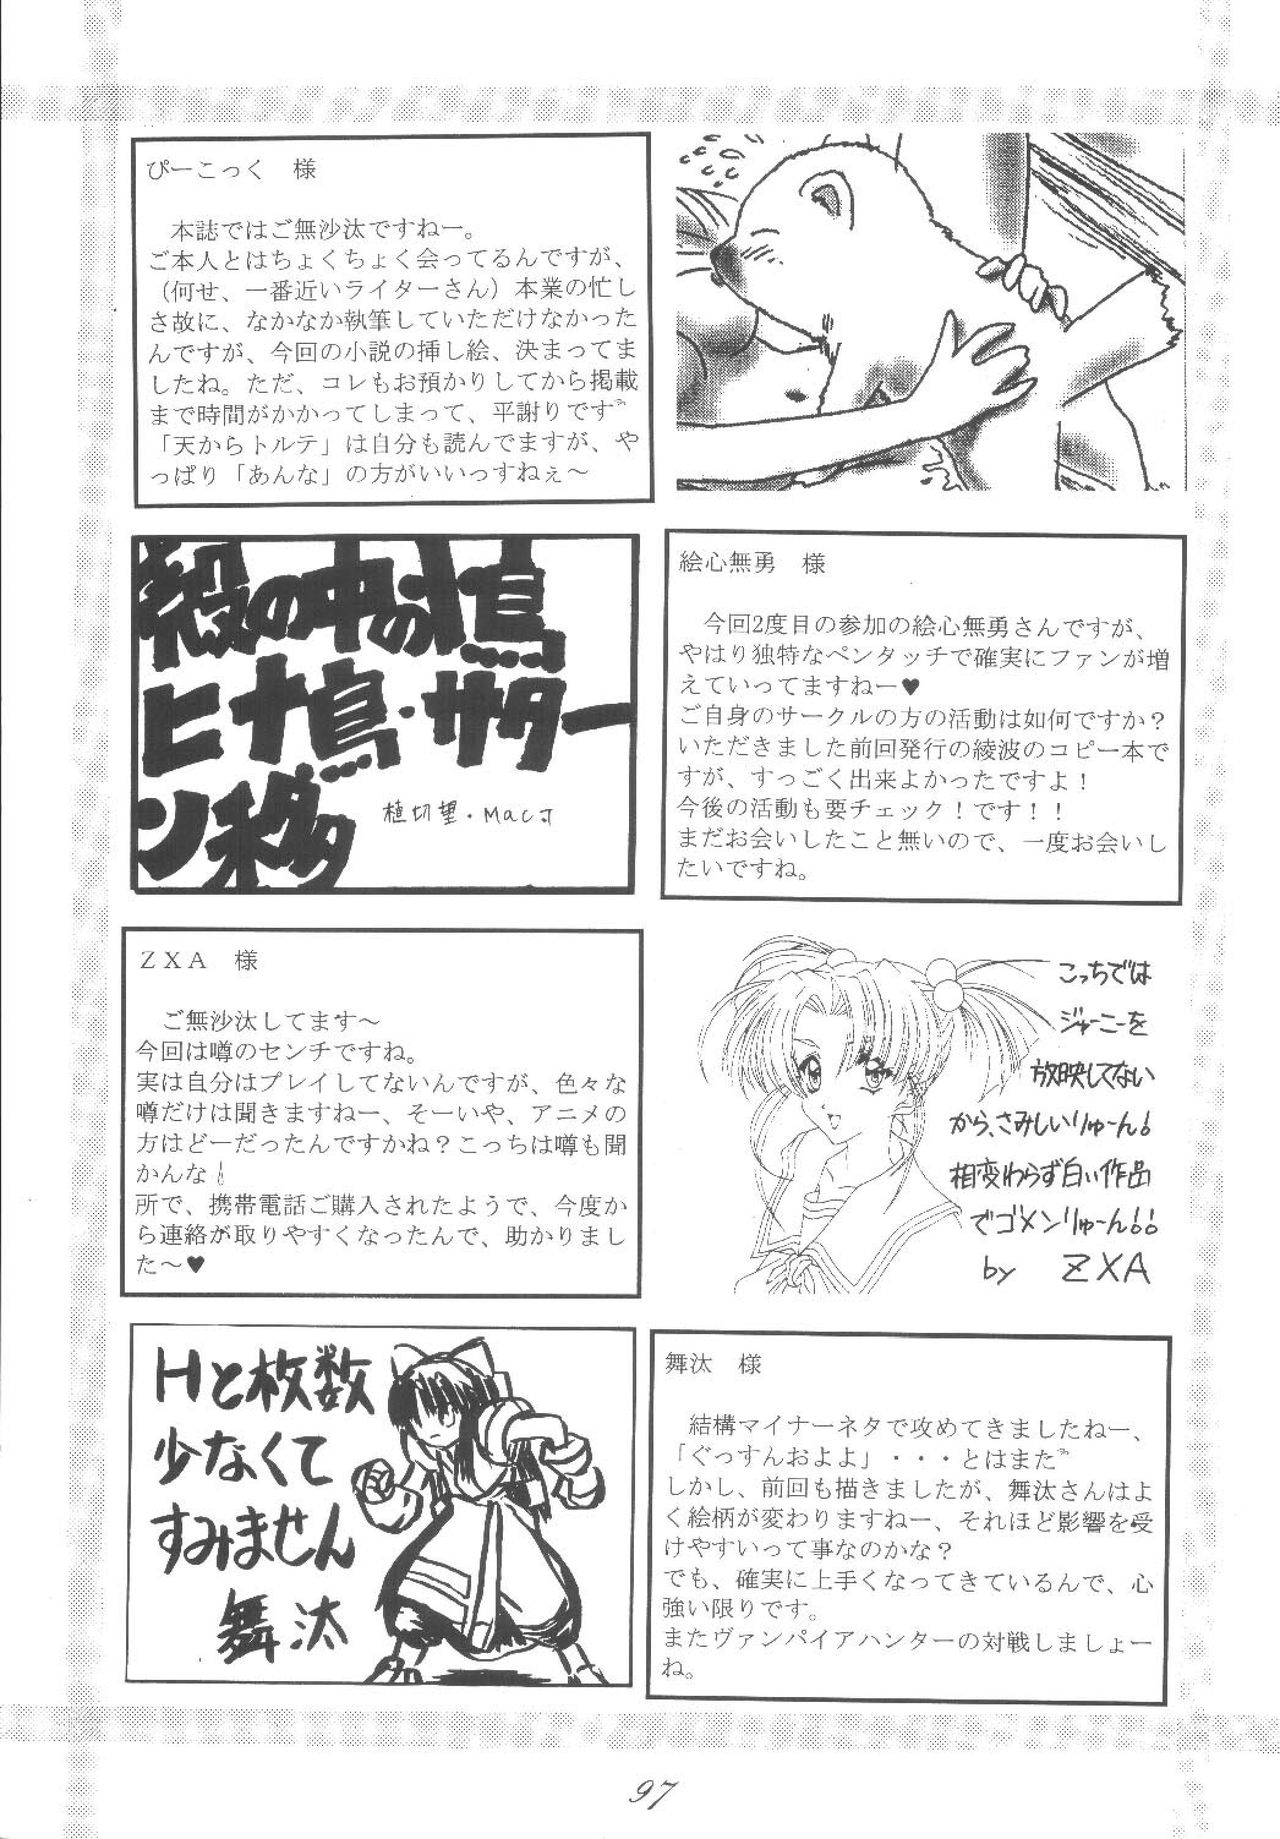 ぴーこっく　様
本誌ではご無沙汰ですねー。
ご本人とはちょくちょく会ってるんですが、
（何せ、一番近いライターさん）本業の忙し
さ故に、なかなか執筆していただけなかった
んですが、今回の小説の挿し絵、決まってま
したね。ただ、コレもお預かりしてから掲載
まで時間がかかってしまって、平謝りです
「天からトルテ」は自分も読んでますが、や
っぱり「あんな」の方がいいっすねぇ～
殻の中の
ヒナ鳥・サター
ン移
植切望・MacJ
絵心無勇　様
今回2度目の参加の絵心無勇さんですが、
やはり独特なペンタッチで確実にファンが増
えていってますねー♥
ご自身のサークルの方の活動は如何ですか？
いただきました前回発行の綾波のコピー本で
すが、すっごく出来よかったですよ！
今後の活動も要チェック！です！！
まだお会いしたこと無いので、一度お会いし
たいですね。
ＺＸＡ　様
ご無沙汰してます～
今回は噂のセンチですね。
実は自分はプレイしてないんですが、色々な
噂だけは聞きますねー、そーいや、アニメの
方はどーだったんですかね？こっちは噂も聞
かんな！
所で、携帯電話ご購入されたようで、今度か
ら連絡が取りやすくなったんで、助かりまし
た～♥
こっちでは
ジャーニーを
放映してない
から、さみしいりゅーん!
相変わらず白い作品
でゴメンりゅーん!!
by ZXA
Hと枚数
少なくて
すみません
舞汰
舞汰　様
結構マイナーネタで攻めてきましたねー、
「ぐっすんおよよ」・・・とはまた
しかし、前回も描きましたが、舞汰さんはよ
く絵柄が変わりますねー、それほど影響を受
けやすいって事なのかな？
でも、確実に上手くなってきているんで、心
強い限りです。
またヴァンパイアハンターの対戦しましょー
ね。
97